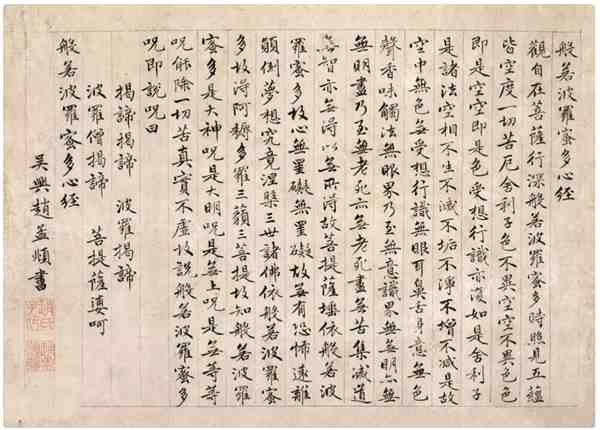 般若波羅蜜多心經
觀自在菩薩行深般若波羅蜜多時照見五蘊
皆空度一切苦厄舍利子色不異空空不異色色
即是空空即是色受想行識亦復如是舍利子
是諸法空相不生不滅不垢不淨不增不減是故
空中無色無受想行識無眼耳鼻舌身意無色
聲香味觸法無眼界乃至無意識界無無明亦無
無明盡乃至無老死亦無老死盡無苦集滅道
無智亦無得以無所得故菩提薩埵依般若波
羅蜜多故心無罣礙無罣礙故無有恐怖遠離
顛倒夢想究竟涅槃三世諸佛依般若波羅蜜
多故得阿耨多羅三藐三菩提故知般若波羅
蜜多是大神呪是大明呪是無上呪是無等等
呪能除一切苦真實不虛故說般若波羅蜜多
呪即說呪曰
揭諦揭諦　波羅揭諦
波羅僧揭諦　菩提薩婆呵
般若波羅蜜多心經
吳興趙孟頫書